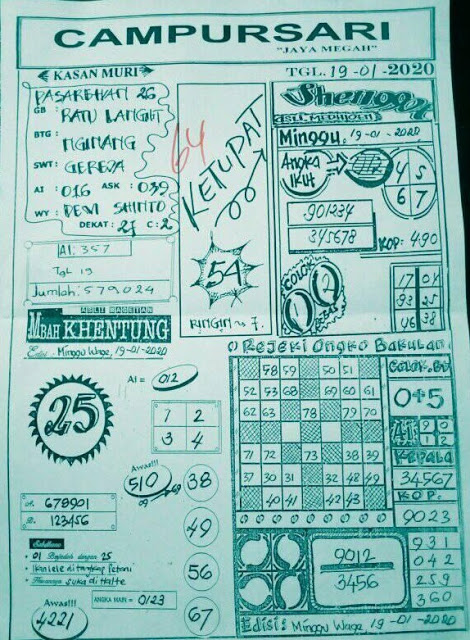 CAMPURSARI
"JAYA MEGAH"
KASAN MURI
TGL. 19-01-2020
PASAREHAN 26
GB : RATU LANGIT
BTG :
NGINANG
SWT : GEREJA
AI : 016 ASK : 039
WY : DEWI SHINTO
DEKAT : 27 C : 2
AI: 357
TGL 19
Jumlah: 579024
64
KETUPAT
54
RINGIN 7.
Minggu, 19-01-2020
ANGKA
IKIH
4 5
6 7
901234
345678
KOP: 490
COLOK
1 2
17 04
93 25
46 38
ASLI MAGETAN
MBAH KHENTUNG
Edisi : Minggu Wage, 19-01-2020
AI = 012
25
1 2
3 4
Awas!!!
510
38
49
56
67
A. 678901
B. 123456
01 Berjodoh dengan 25
Ikan lele ditangkap Petani
suka di Halte
Awas!!!
4221
ANGKA MAIN = 0123
Rejeki Ongko Bakulan
58 59 50 51
52 53 68 69 60 61
62 63 78 79 70
71 72 73 38 39
37 30 31 32 48 49
40 41 42 43
0+5
AI 9 0
1 2
KEPALA
34567
KOP.
9023
9012
3456
931
042
259
360
Edisi: Minggu Wage, 19-01-2020